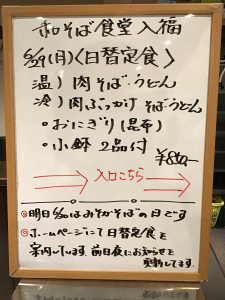 和そば食堂 入福
5/29(月)〈日替定食〉
温) 肉そば・うどん
冷) 肉ぶっかけ そば・うどん
・おにぎり(昆布)
・小鉢 2品付
¥800-
入口こちら
◎明日5/30はみそかそばの日です
◎ホームページにて日替定食を
案内しています。前日夜にお知らせを
更新してます。